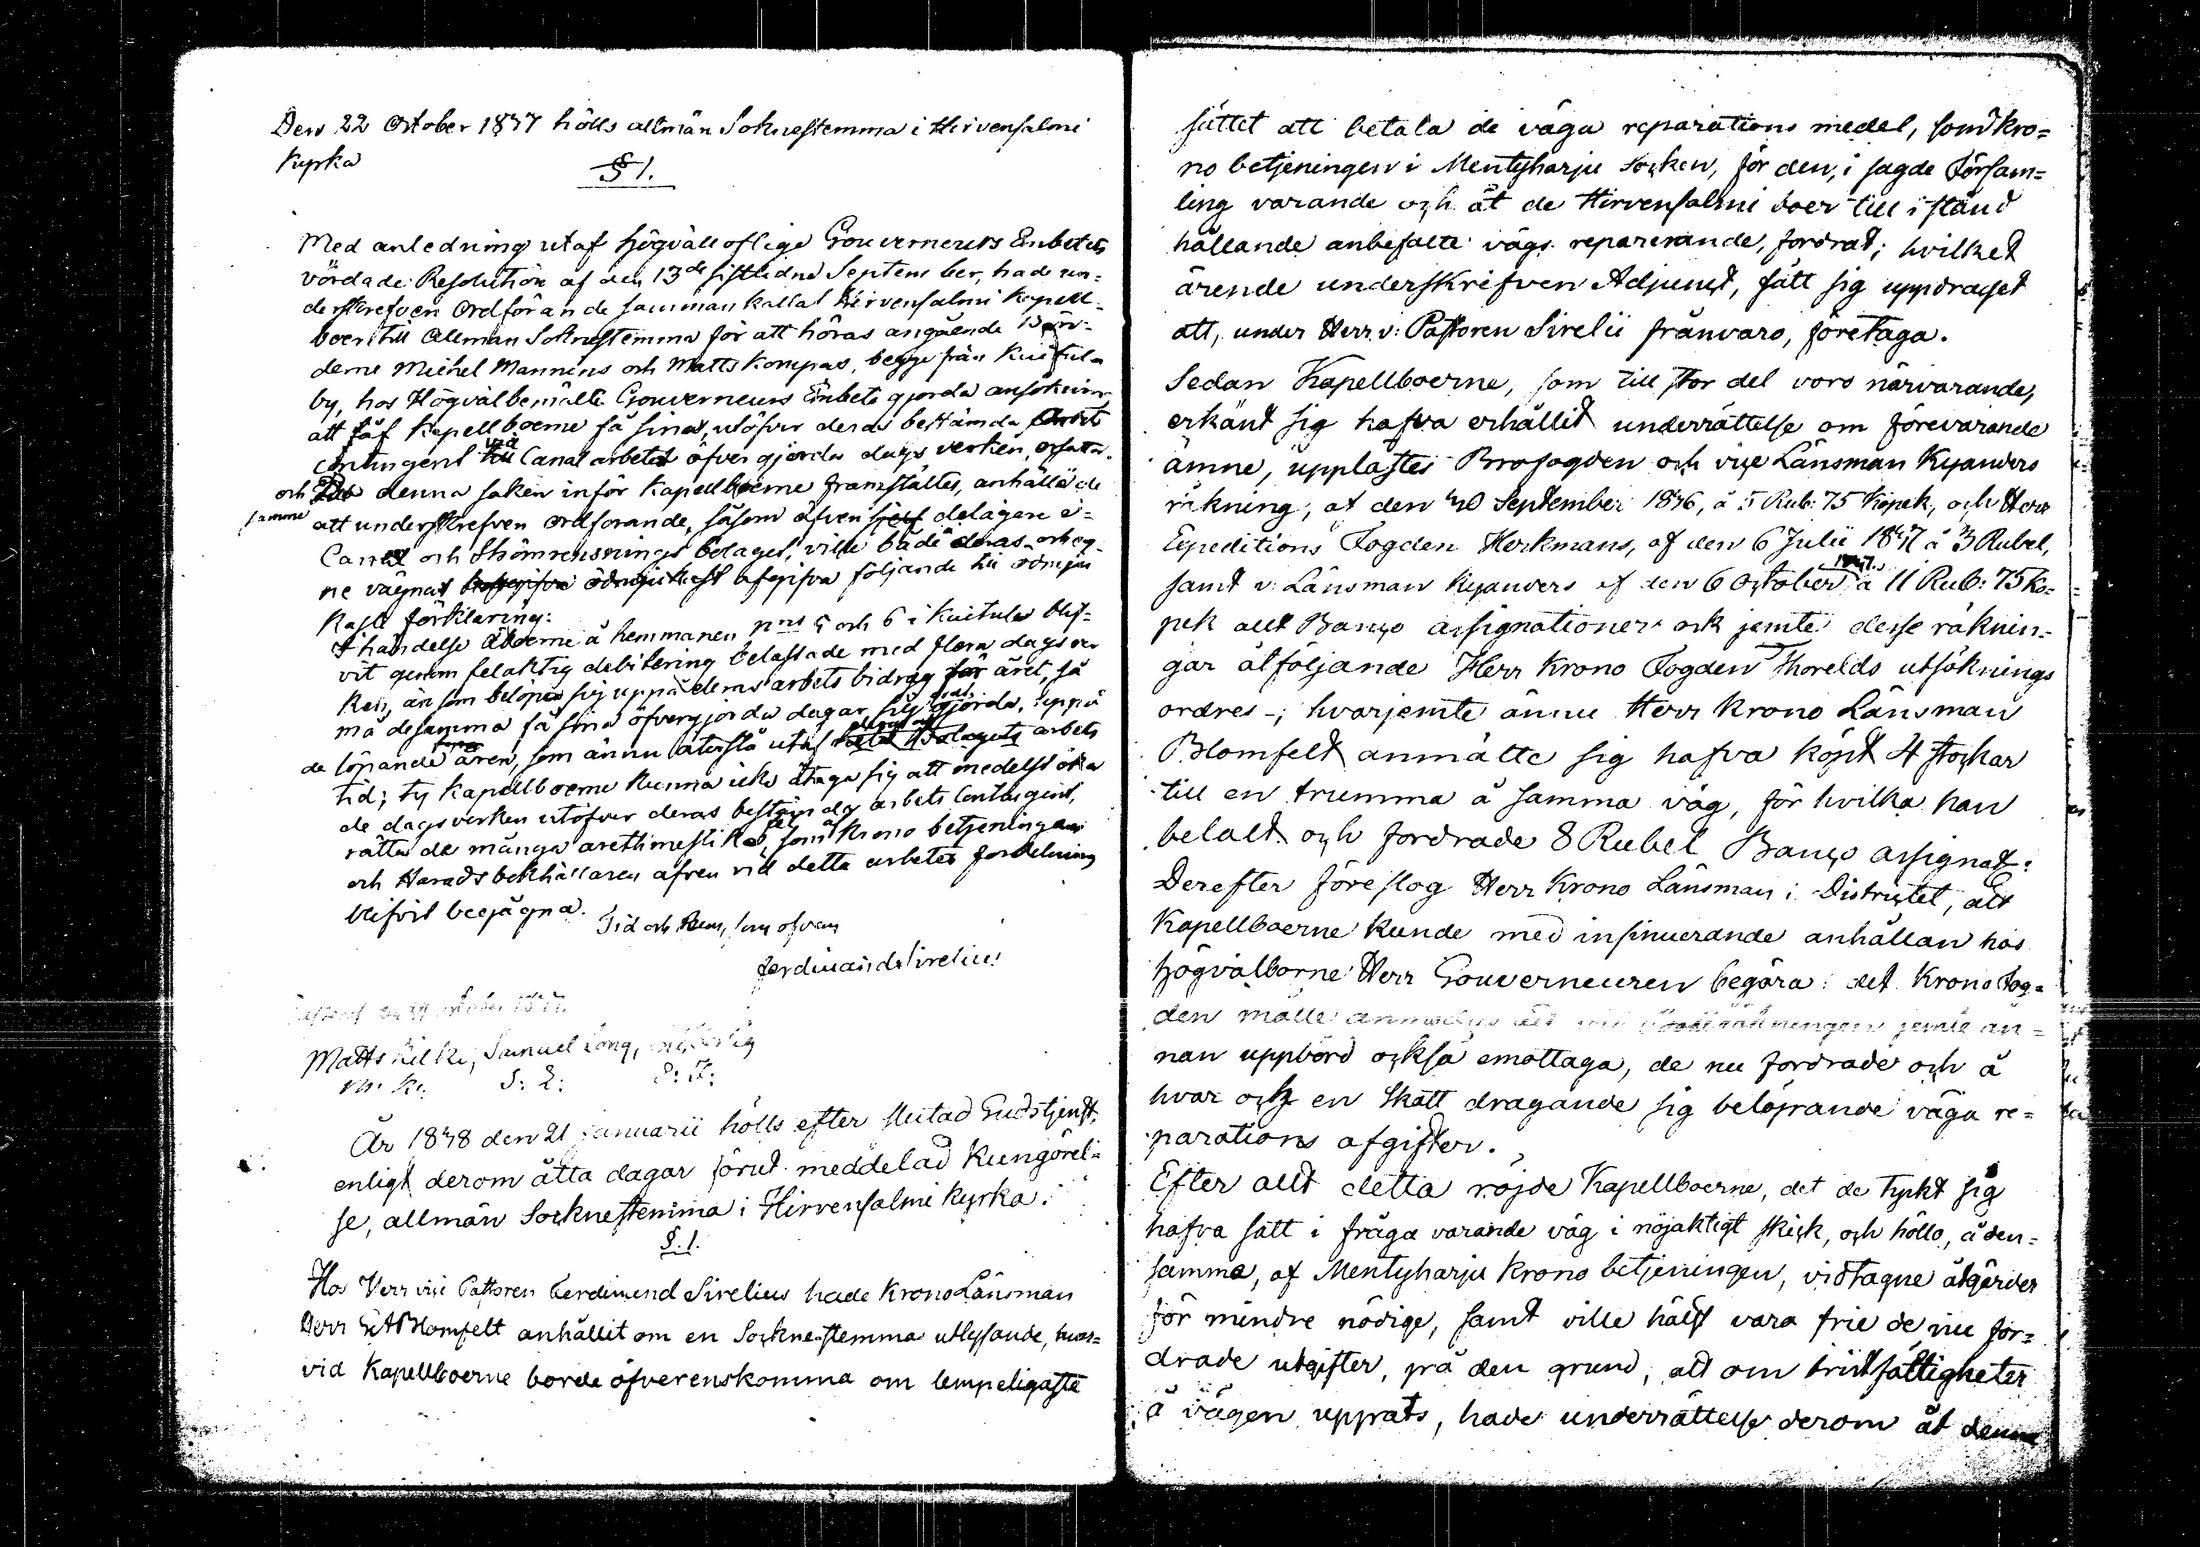 Den 22 October 1837 hölls allmän Soknestemma i Hirvensalmi
Kyrka
§ 1.
Med anledning utaf Högvälloflige Gouverneurs Embetets
vördade Resolution af den 13de sistledne September, hade un-
derskrefven Ordförande sammankallat Hirvensalmi Kapell-
boer till Allmän Soknestemma för att höras angående Bön-
derne Michel Mannins och Matts Kompas, begge från Kuitula
by, hos Högvälbemälte Gouverneurs Embete gjorda ansökning
att få af Kapellboerne få sina, utöfver deras bestämda Arbets
contingent vid Canal arbetet öfver gjorda dags verken, ersatta.
och denna saken inför Kapellboerne framstältes, anhällo de
samme att underskrefven ordförande, såsom äfven sjelf delägare i
Canal och Strömrensnings bolaget, ville både deras och eg-
ne vägnar ödmjukast afgifva följande till ödmju
kaste förklaring:
I händelse Åboerne å hemmanen nris 5 och 6 i Kuitula blif-
vit genom felaktig debitering belastade med flera dagsver
ken, än som belöper sig uppå deras arbets bidrag för året, så
må desamma få sina öfvergjorda dagar sig gjorda, uppå
de löpande åren, som ännu återstå utaf arbets
tid; ty Kapellboerne kunna icke åtaga sig att medelst öka
de dagsverken utöfver deras bestämda arbets Contingent,
rätta de många arethmestiska fel, som Krono betjeningen
och Haradsbokhållaren äfven vid detta arbetes fördelning
blifvit begågna.
Tid och Rum, som ofvan
Ferdinand Sirelius
october 1837.
Matts Kilki, Samuel Long,
M: K: S: L:
År 1838 den 21 januarii hölls efter slutad Gudstjenst,
enligt derom åtta dagar förut meddelad Kungörel-
se, allmän Socknestemma i Hirvensalmi Kyrka.
§. 1.
Hos Herr vice Pastoren Ferdinand Sirelius hade Krono Länsman
Herr Blomfelt anhållit om en Socknestemmas utlysande, hvar-
vid Kapellboerne borde öfverenskomma om lempeligaste
sättet att betala de väga reparations medel, som Kro-
no betjeningen i Mentyharju Socken, för den, i sagde Försam-
ling varande och åt de Hirvensalmi boer till i stånd
hållande anbefalte vägs reparerande, fordrat; hvilket
ärende underskrifven Adjunct, fått sig uppdraget
att, under Herr v: Pastoren Sirelii frånvaro, företaga.
Sedan Kapellboerne, som till stor del voro närvarande,
erkänt sig hafva erhållit underrättelse om förevarande
ämne, upplästes Brofogden och vice Länsman Kyanders
räkning, af den 20 September 1836, å 5 Rub: 75 Kopek, och Herr
Expeditions Fogden Herkmans, af den 6 Julii 1837 å 3 Rubel,
samt v: Länsman Kyanders af den 6 October 1837. å 11 Rub: 75 Ko-
pek allt Banco assignationer och jemte desse räknin-
gar åtföljande Herr Krono Fogden Thorelds utsöknings
ordres -; hvarjemte ännu Herr Krono Länsman
Blomfelt anmälte sig hafva köpt 4 stockar
till en trumma å samma väg, för hvilka han
belalt och fordrade 8 Rubel Banco assignat:
Derefter föreslog Herr Krono Länsman i Districtet, att
Kapellboerne kunde med insinuerande anhållan hos
Högvälborne Herr Gouverneuren begära: det Krono Fog-
den måtte anmodas att vid jemte an-
nan uppbörd också emottaga, de nu fordrade och å
hvar och en Skatt dragande sig belöpande väga re-
parations afgifter.
Efter allt detta röjde Kapellboerne, det de tyckt sig
hafva satt i fråga varande väg i nöjaktigt skick, och höllo, å den-
samma, af Mentyharju Krono betjeningen, vidtagne åtgärder
för mindre nödige, samt ville hälst vara frie de nu for-
drade utgifter, på den grund, att om bristfälligheter
å vägen upprats, hade underrättelse derom åt denna